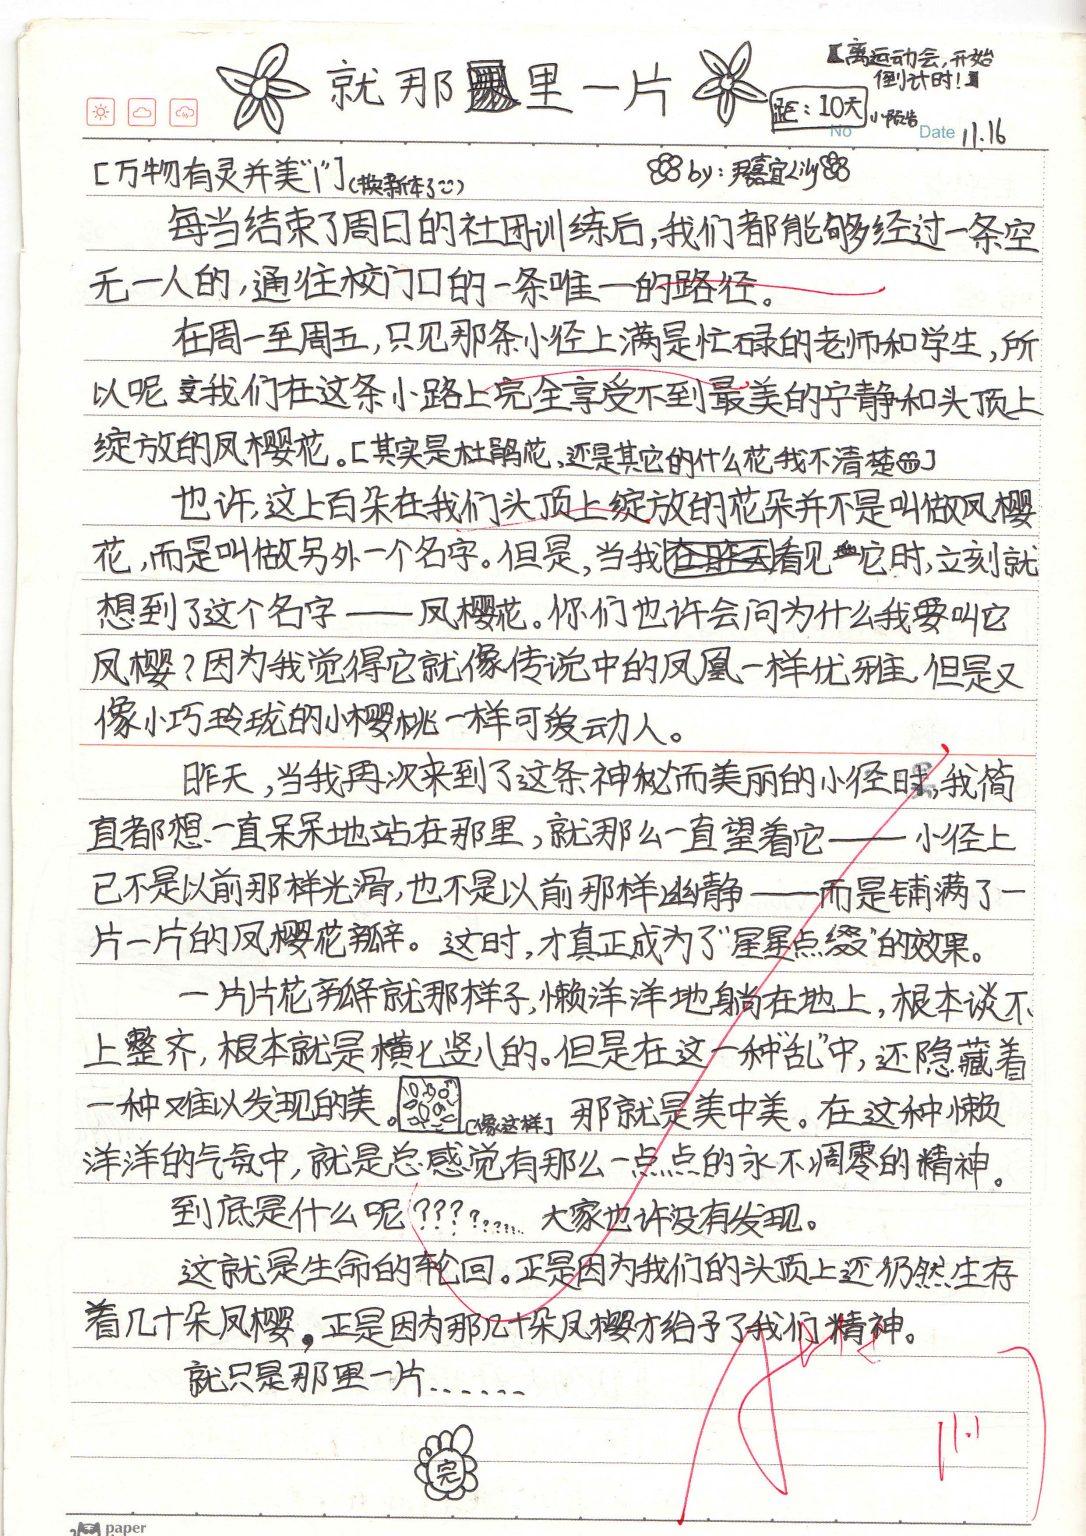 【离运动会,开始
倒计时!】
就那里一片
距:10天
小预告
No
Date 11.16
[万物有灵并美"1"](换新本了)
by:尹嘉宜Lily
每当结束了周日的社团训练后,我们都能够经过一条空
无一人的,通往校门口的一条唯一的路径。
在周一至周五,只见那条小径上满是忙碌的老师和学生,所
以呢我们在这条小路上完全享受不到最美的宁静和头顶上
绽放的凤樱花。[其实是杜鹃花,还是其它的什么花我不清楚]
也许,这上百朵在我们头顶上绽放的花朵并不是叫做凤樱
花,而是叫做另外一个名字。但是,当我看见它时,立刻就
想到了这个名字——凤樱花。你们也许会问为什么我要叫它
凤樱?因为我觉得它就像传说中的凤凰一样优雅,但是又
像小巧玲珑的小樱桃一样可爱动人。
昨天,当我再次来到了这条神秘而美丽的小径时,我简
直都想一直呆呆地站在那里,就那么一直望着它——小径上
已不是以前那样光滑,也不是以前那样幽静——而是铺满了一
片一片的凤樱花瓣。这时,才真正成为了"星星点缀"的效果。
一片片花瓣就那样子,懒洋洋地躺在地上,根本谈不
上整齐,根本就是横七竖八的。但是在这一种"乱"中,还隐藏着
一种难以发现的美。[像这样]那就是美中美。在这种懒
洋洋的气氛中,就是总感觉有那么一点点的永不凋零的精神。
到底是什么呢????????...大家也许没有发现。
这就是生命的轮回。正是因为我们的头顶上还仍然生存
着几十朵凤樱。正是因为那几十朵凤樱才给予了我们精神。
就只是那里一片......
完
11.1
paper